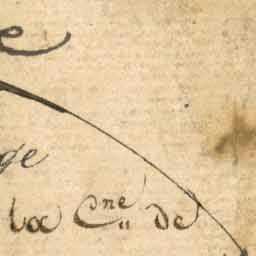 e
ge
la Cne de